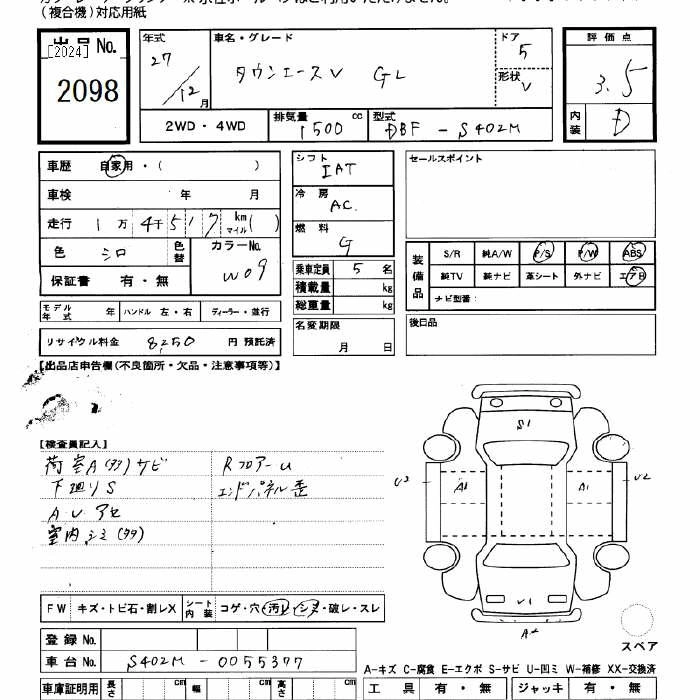 (複合機)対応用紙
出品 No.
[2024]
2098
年式
27
12月
車名・グレード
タウンエースV GL
ドア
5
形状
V
2WD・4WD
排気量 1500 cc
型式 DBF - S402M
評価点
3.5
内装
D
車歴 自家用・( )
車検 年 月
走行 1万 4千 517 km マイル( )
色 シロ 色替
カラーNo. W09
保証書 有・無
シフト
IAT
冷房
AC.
燃料
G
セールスポイント
装備品
S/R 純A/W P/S P/W ABS
純TV 純ナビ 革シート 外ナビ エアB
ナビ型番:
乗車定員 5 名
積載量 kg
総重量 kg
モデル年式 年 ハンドル 左・右 ディーラー・並行
名変期限
月 日
後日品
リサイクル料金 8,250 円 預託済
【出品店申告欄(不良箇所・欠品・注意事項等)】
【検査員記入】
荷室A(タタ)サビ
下廻りS
AUアセ
室内シミ(タタ)
RフロアーU
エンドパネル歪
S1
U3
A1
A1
U2
U1
A2
スペア
FW キズ・トビ石・割レX シート内装 コゲ・穴・汚レ・シミ・破レ・スレ
登録 No.
車台 No. S402M - 0055377
車庫証明用 長さ cm 幅 cm 高さ cm
A-キズ C-腐食 E-エクボ S-サビ U-凹ミ W-補修 XX-交換済
工具 有・無 ジャッキ 有・無